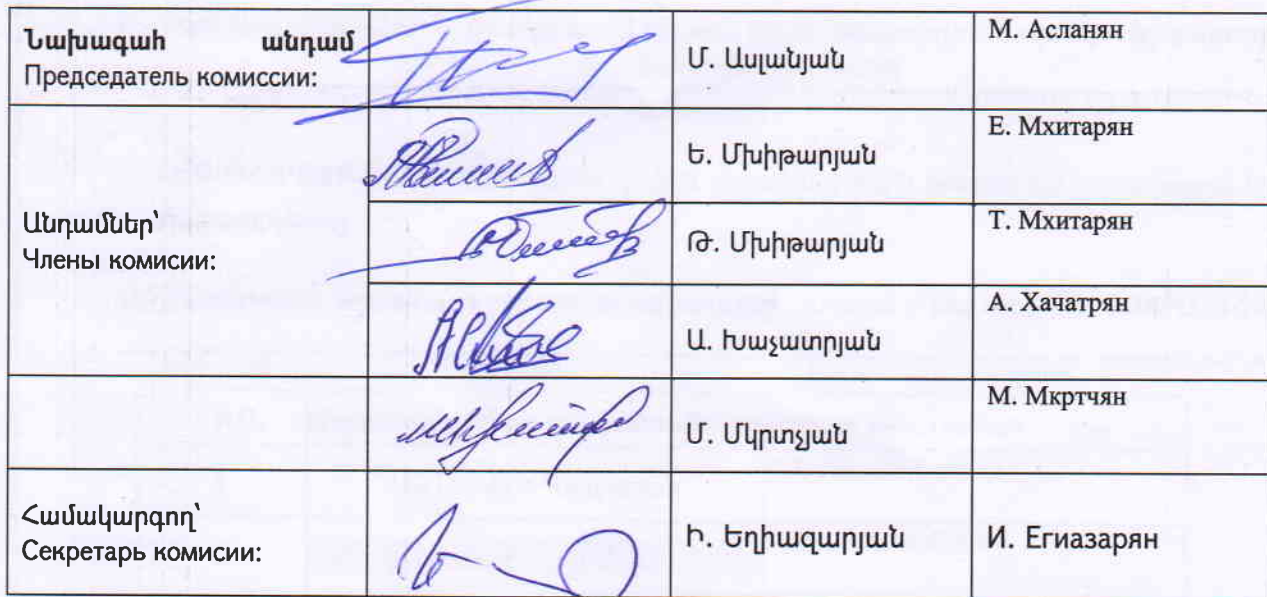 Նախագահ անդամ
Председатель комиссии:
Մ. Ասլանյան
М. Асланян
Ե. Մխիթարյան
Е. Мхитарян
Անդամներ՝
Члены комисии:
Թ. Մխիթարյան
Т. Мхитарян
Ա. Խաչատրյան
А. Хачатрян
Մ. Մկրտչյան
М. Мкртчян
Համակարգող՝
Секретарь комисии:
Ի. Եղիազարյան
И. Егиазарян